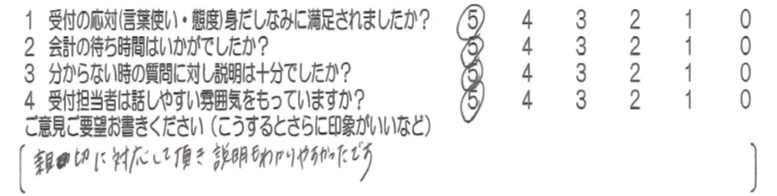 1 受付の応対(言葉使い・態度)身だしなみに満足されましたか? 5 4 3 2 1 0
2 会計の待ち時間はいかがでしたか? 5 4 3 2 1 0
3 分からない時の質問に対し説明は十分でしたか? 5 4 3 2 1 0
4 受付担当者は話しやすい雰囲気をもっていますか? 5 4 3 2 1 0
ご意見ご要望お書きください(こうするとさらに印象がいいなど)
親切に対応して頂き説明もわかりやすかったです